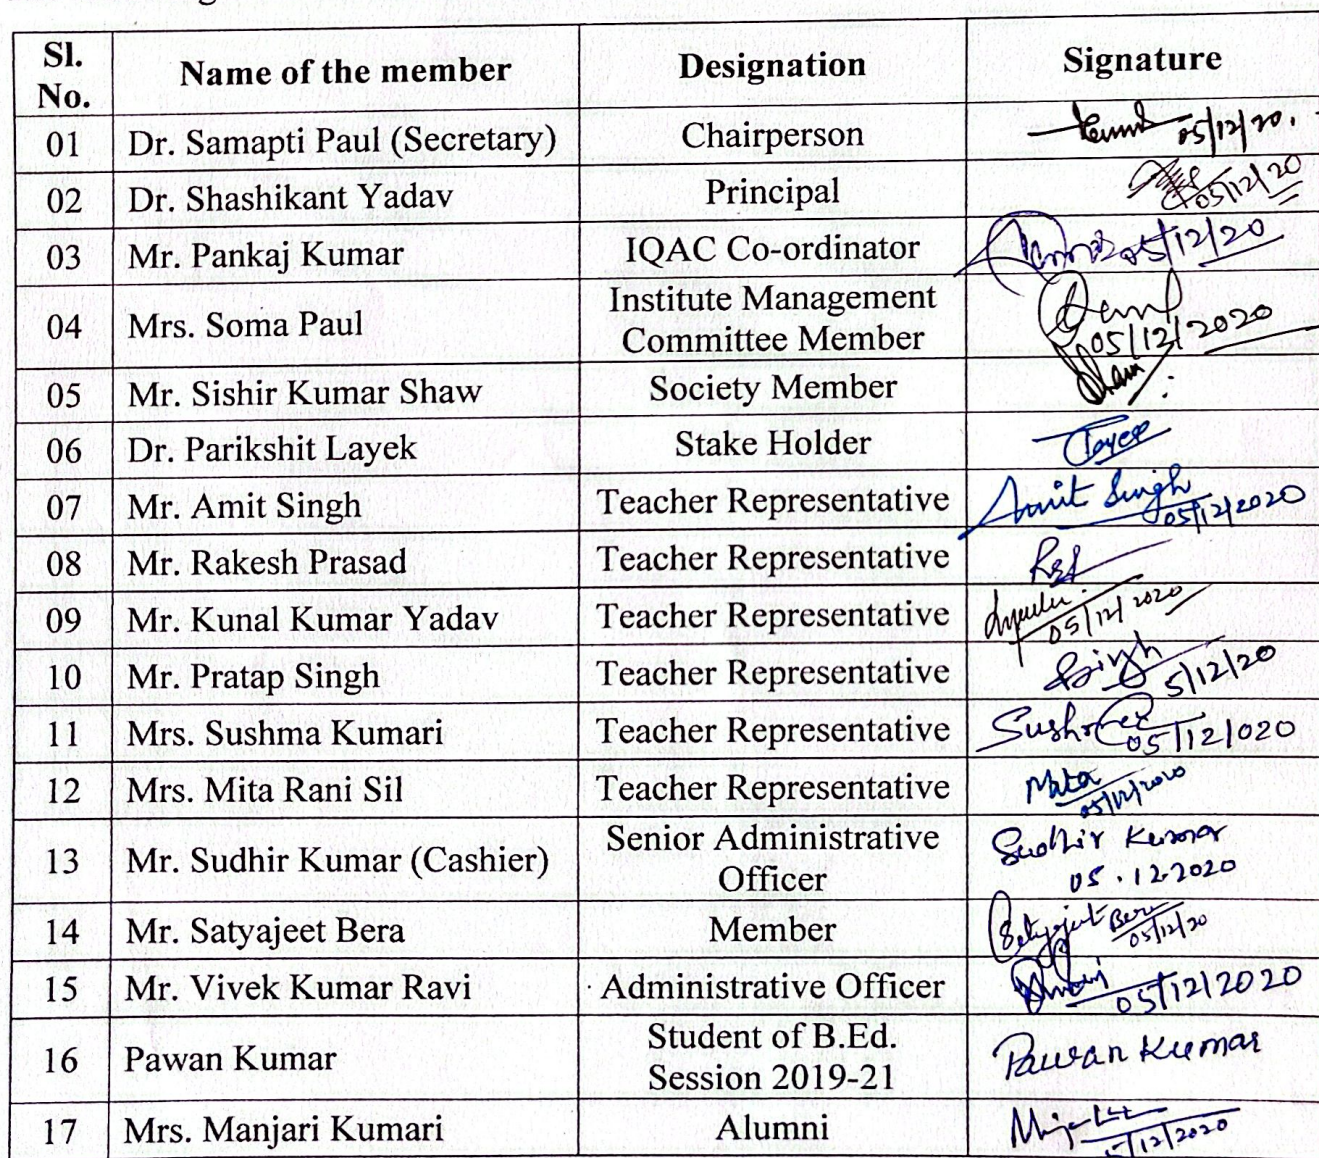 Sl. No. Name of the member Designation Signature
01 Dr. Samapti Paul (Secretary) Chairperson 05/12/20.
02 Dr. Shashikant Yadav Principal 05/12/20
03 Mr. Pankaj Kumar IQAC Co-ordinator 05/12/20
04 Mrs. Soma Paul Institute Management Committee Member 05/12/2020
05 Mr. Sishir Kumar Shaw Society Member
06 Dr. Parikshit Layek Stake Holder
07 Mr. Amit Singh Teacher Representative Amit Singh 05/12/2020
08 Mr. Rakesh Prasad Teacher Representative
09 Mr. Kunal Kumar Yadav Teacher Representative 05/12/2020
10 Mr. Pratap Singh Teacher Representative Singh 5/12/20
11 Mrs. Sushma Kumari Teacher Representative 05/12/020
12 Mrs. Mita Rani Sil Teacher Representative Mita 05/12/2020
13 Mr. Sudhir Kumar (Cashier) Senior Administrative Officer Sudhir Kumar 05.12.2020
14 Mr. Satyajeet Bera Member Satyajeet Bera 05/12/20
15 Mr. Vivek Kumar Ravi Administrative Officer 05/12/2020
16 Pawan Kumar Student of B.Ed. Session 2019-21 Pawan Kumar
17 Mrs. Manjari Kumari Alumni 5/12/2020